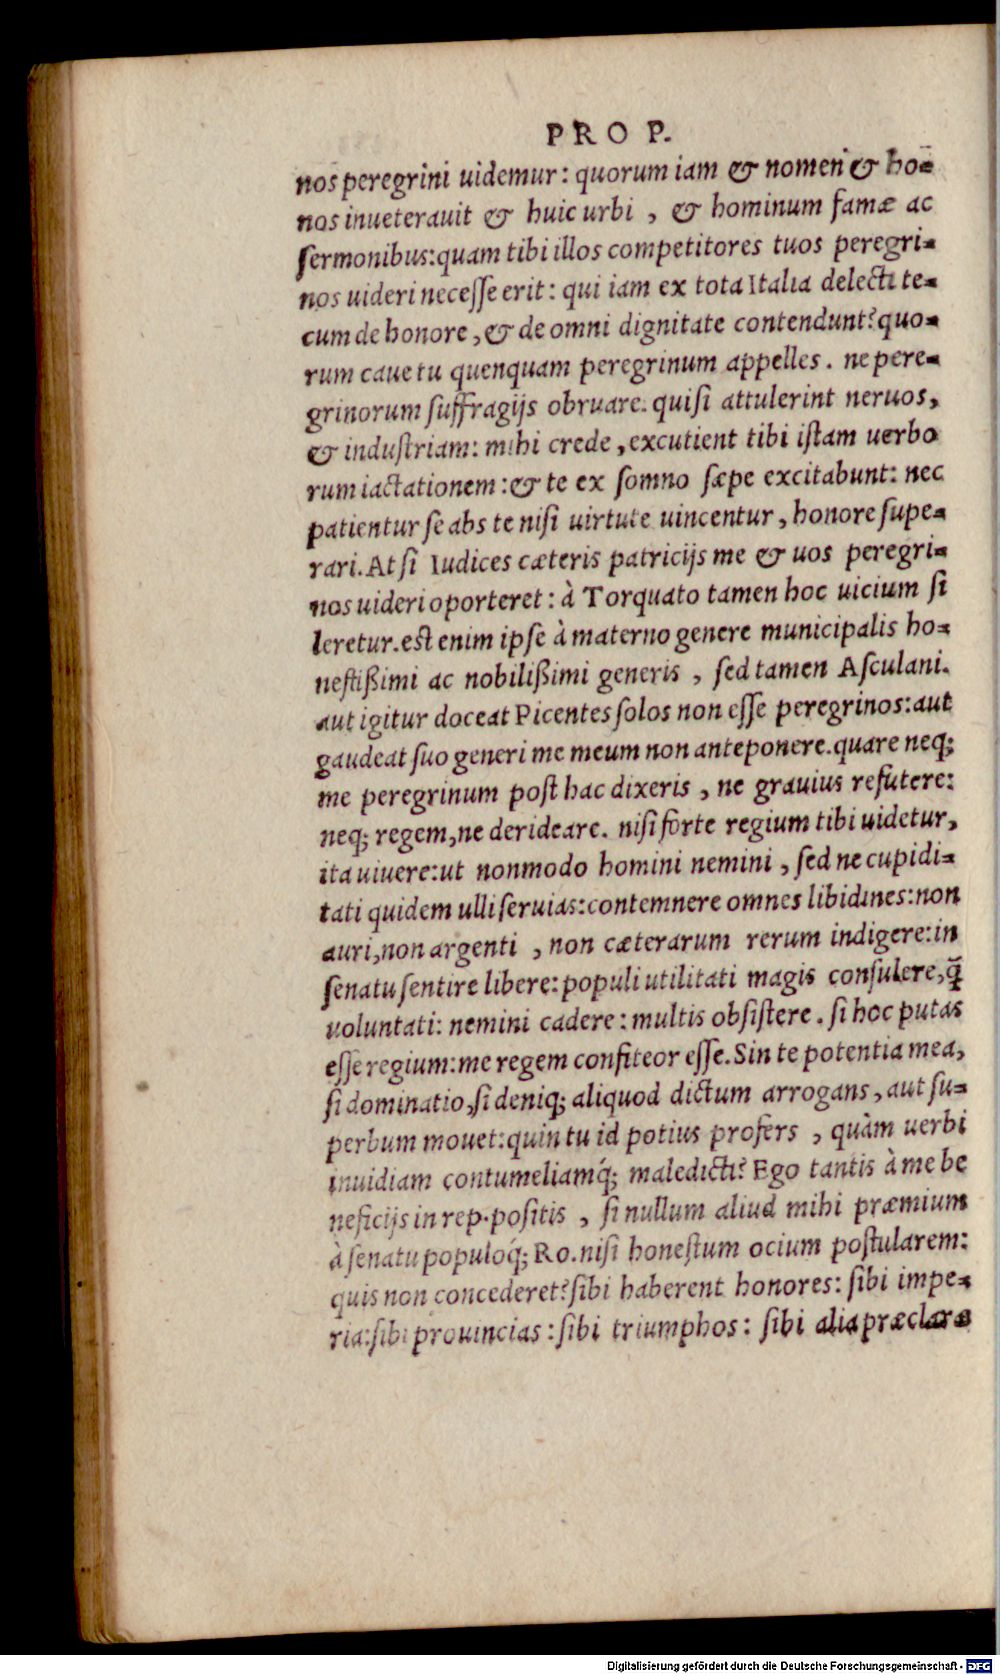 PRO P.
nos peregrini uidemur: quorum iam & nomen & ho=
nos inueterauit & huic urbi , & hominum famæ ac
ſermonibus:quam tibi illos competitores tuos peregri=
nos uideri neceſſe erit: qui iam ex tota Italia delecti te=
cum de honore , & de omni dignitate contendunt? quo=
rum caue tu quenquam peregrinum appelles. ne pere=
grinorum ſuffragijs obruare. qui ſi attulerint neruos,
& induſtriam: mihi crede , excutient tibi iſtam uerbo
rum iactationem : & te ex ſomno ſæpe excitabunt: nec
patientur ſe abs te niſi uirtute uincentur , honore ſupe=
rari. At ſi Iudices cæteris patricijs me & uos peregri=
nos uideri oporteret : à Torquato tamen hoc uicium ſi
leretur. eſt enim ipſe à materno genere municipalis ho=
neſtißimi ac nobilißimi generis , ſed tamen Aſculani.
aut igitur doceat Picentes ſolos non eſſe peregrinos: aut
gaudeat ſuo generi me meum non anteponere. quare neq;
me peregrinum poſt hac dixeris , ne grauius refutere:
neq; regem, ne derideare. niſi forte regium tibi uidetur,
ita uiuere: ut nonmodo homini nemini , ſed ne cupidi=
tati quidem ulli ſeruias: contemnere omnes libidines: non
auri, non argenti , non cæterarum rerum indigere: in
ſenatu ſentire libere: populi utilitati magis conſulere, q̃
uoluntati: nemini cadere: multis obſiſtere. ſi hoc putas
eſſe regium: me regem confiteor eſſe. Sin te potentia mea,
ſi dominatio, ſi deniq; aliquod dictum arrogans, aut ſu=
perbum mouet: quin tu id potius profers , quàm uerbi
inuidiam contumeliamq́; maledicti? Ego tantis à me be
neficijs in rep. poſitis , ſi nullum aliud mihi præmium
à ſenatu populoq́; Ro. niſi honeſtum ocium poſtularem:
quis non concederet? ſibi haberent honores: ſibi impe=
ria: ſibi prouincias: ſibi triumphos: ſibi alia præclara
Digitalisierung gefördert durch die Deutsche Forschungsgemeinschaft - DFG